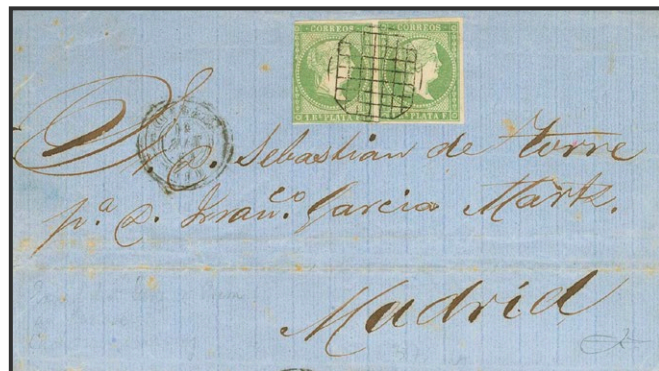 CORREOS CORREOS
1 Rl PLATA F. PLATA F.
D. Sebastian de Torre
p.ª D. Franco. Garcia Martz.
Madrid